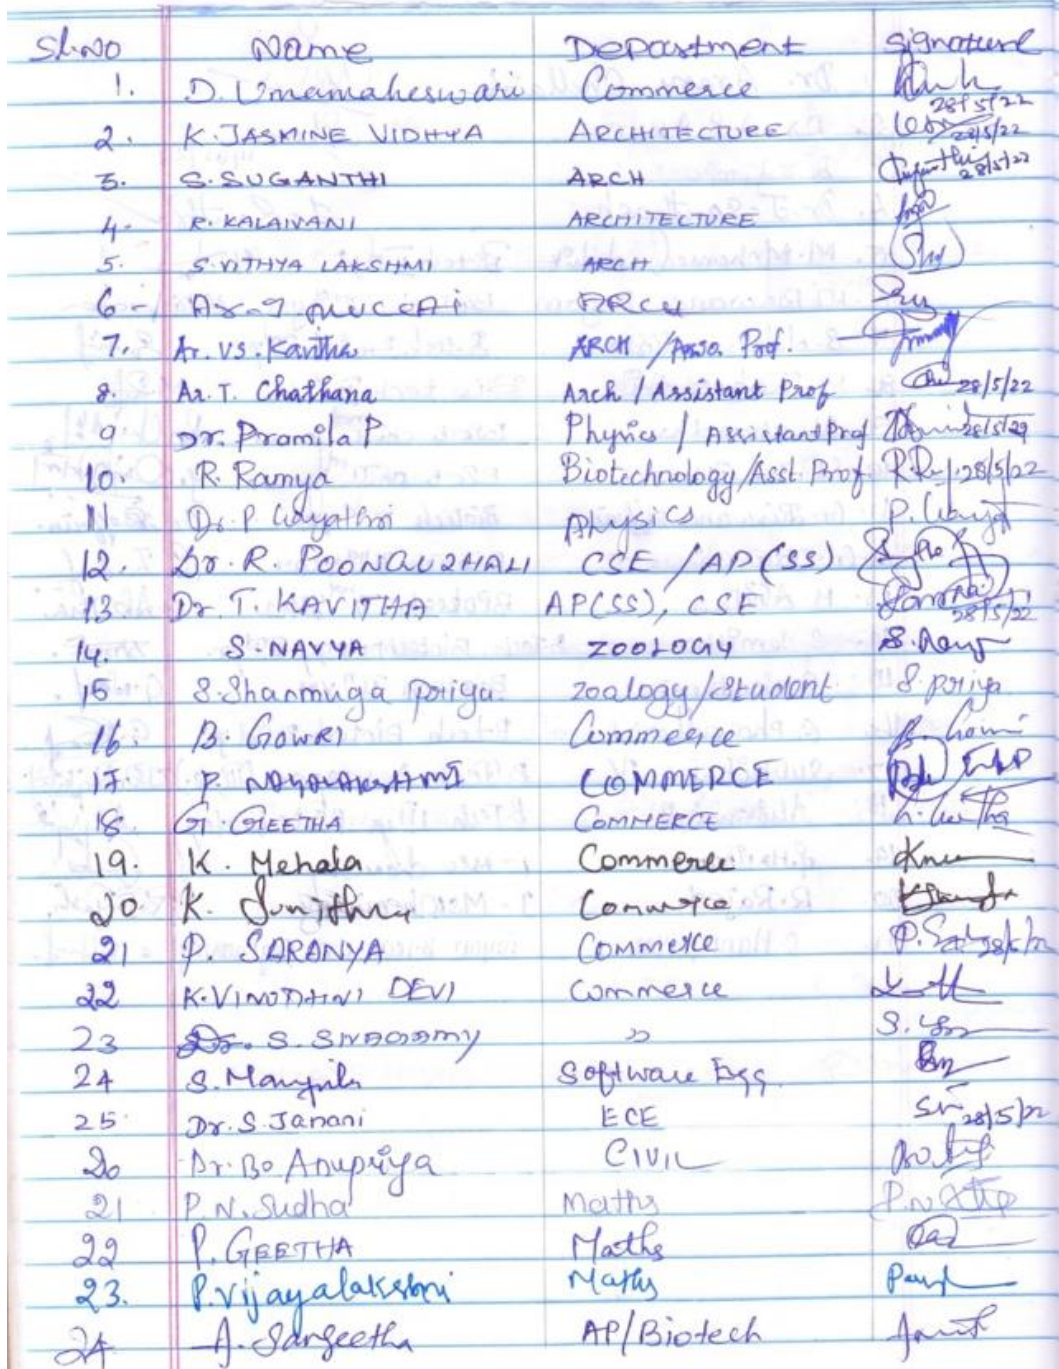 Sl.No Name Department Signature
1. D. Umamaheswari Commerce 28/5/22
2. K. JASMINE VIDHYA ARCHITECTURE 28/5/22
3. S. SUGANTHI ARCH 28/5/22
4. R. KALAIVANI ARCHITECTURE
5. S. VITHYA LAKSHMI ARCH
6 - Ar. ARCH
7. Ar. VS. Kavitha ARCH / Prof.
8. Ar. T. Chathana Arch / Assistant Prof 28/5/22
9 Dr. Pramila P Physics / Assistant Prof
10. R. Ramya Biotechnology/Asst. Prof. 28/5/22
11 Dr. P Gayathri Physics P. Gayat
12. Dr. R. POONGUZHALI CSE / AP (SS)
13. Dr. T. KAVITHA AP(SS), CSE 28/5/22
14. S. NAVYA ZOOLOGY
15 S. Shanmuga priya zoalogy/Student S. priya
16. B. GOWRI Commerce
17. P. COMMERCE
18. G. GEETHA COMMERCE
19. K. Mehala Commerce
20 K. Commerce
21 P. SARANYA Commerce
22 K. VINOTHINI DEVI Commerce
23 Dr. S. SIVAGAMY "
24 S. Software Egg
25. Dr. S. Janani ECE 28/5/22
20 Dr. Bo Anupriya CIVIL
21 P. N. Sudha Maths
22 P. GEETHA Maths
23. P. Vijayalakshmi Maths
24 A. Sangeetha AP/Biotech